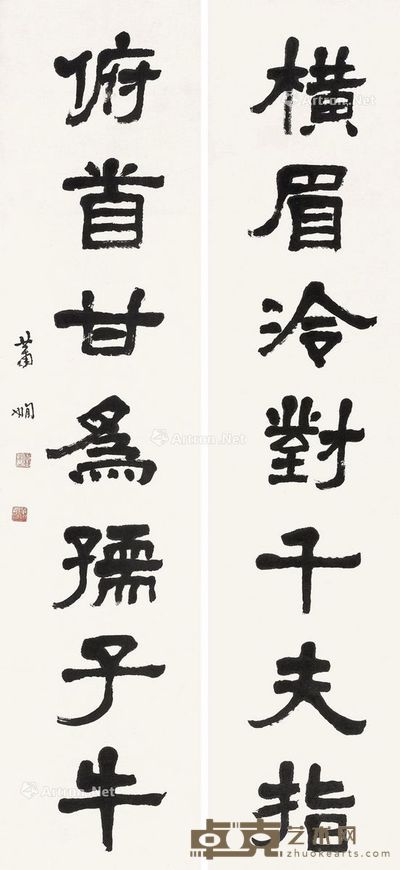 橫眉冷對千夫指
俯首甘為孺子牛
蕭嫻
Artron.Net
Artron.Net
Artron.Net
卓克艺术网
www.zhuokearts.com